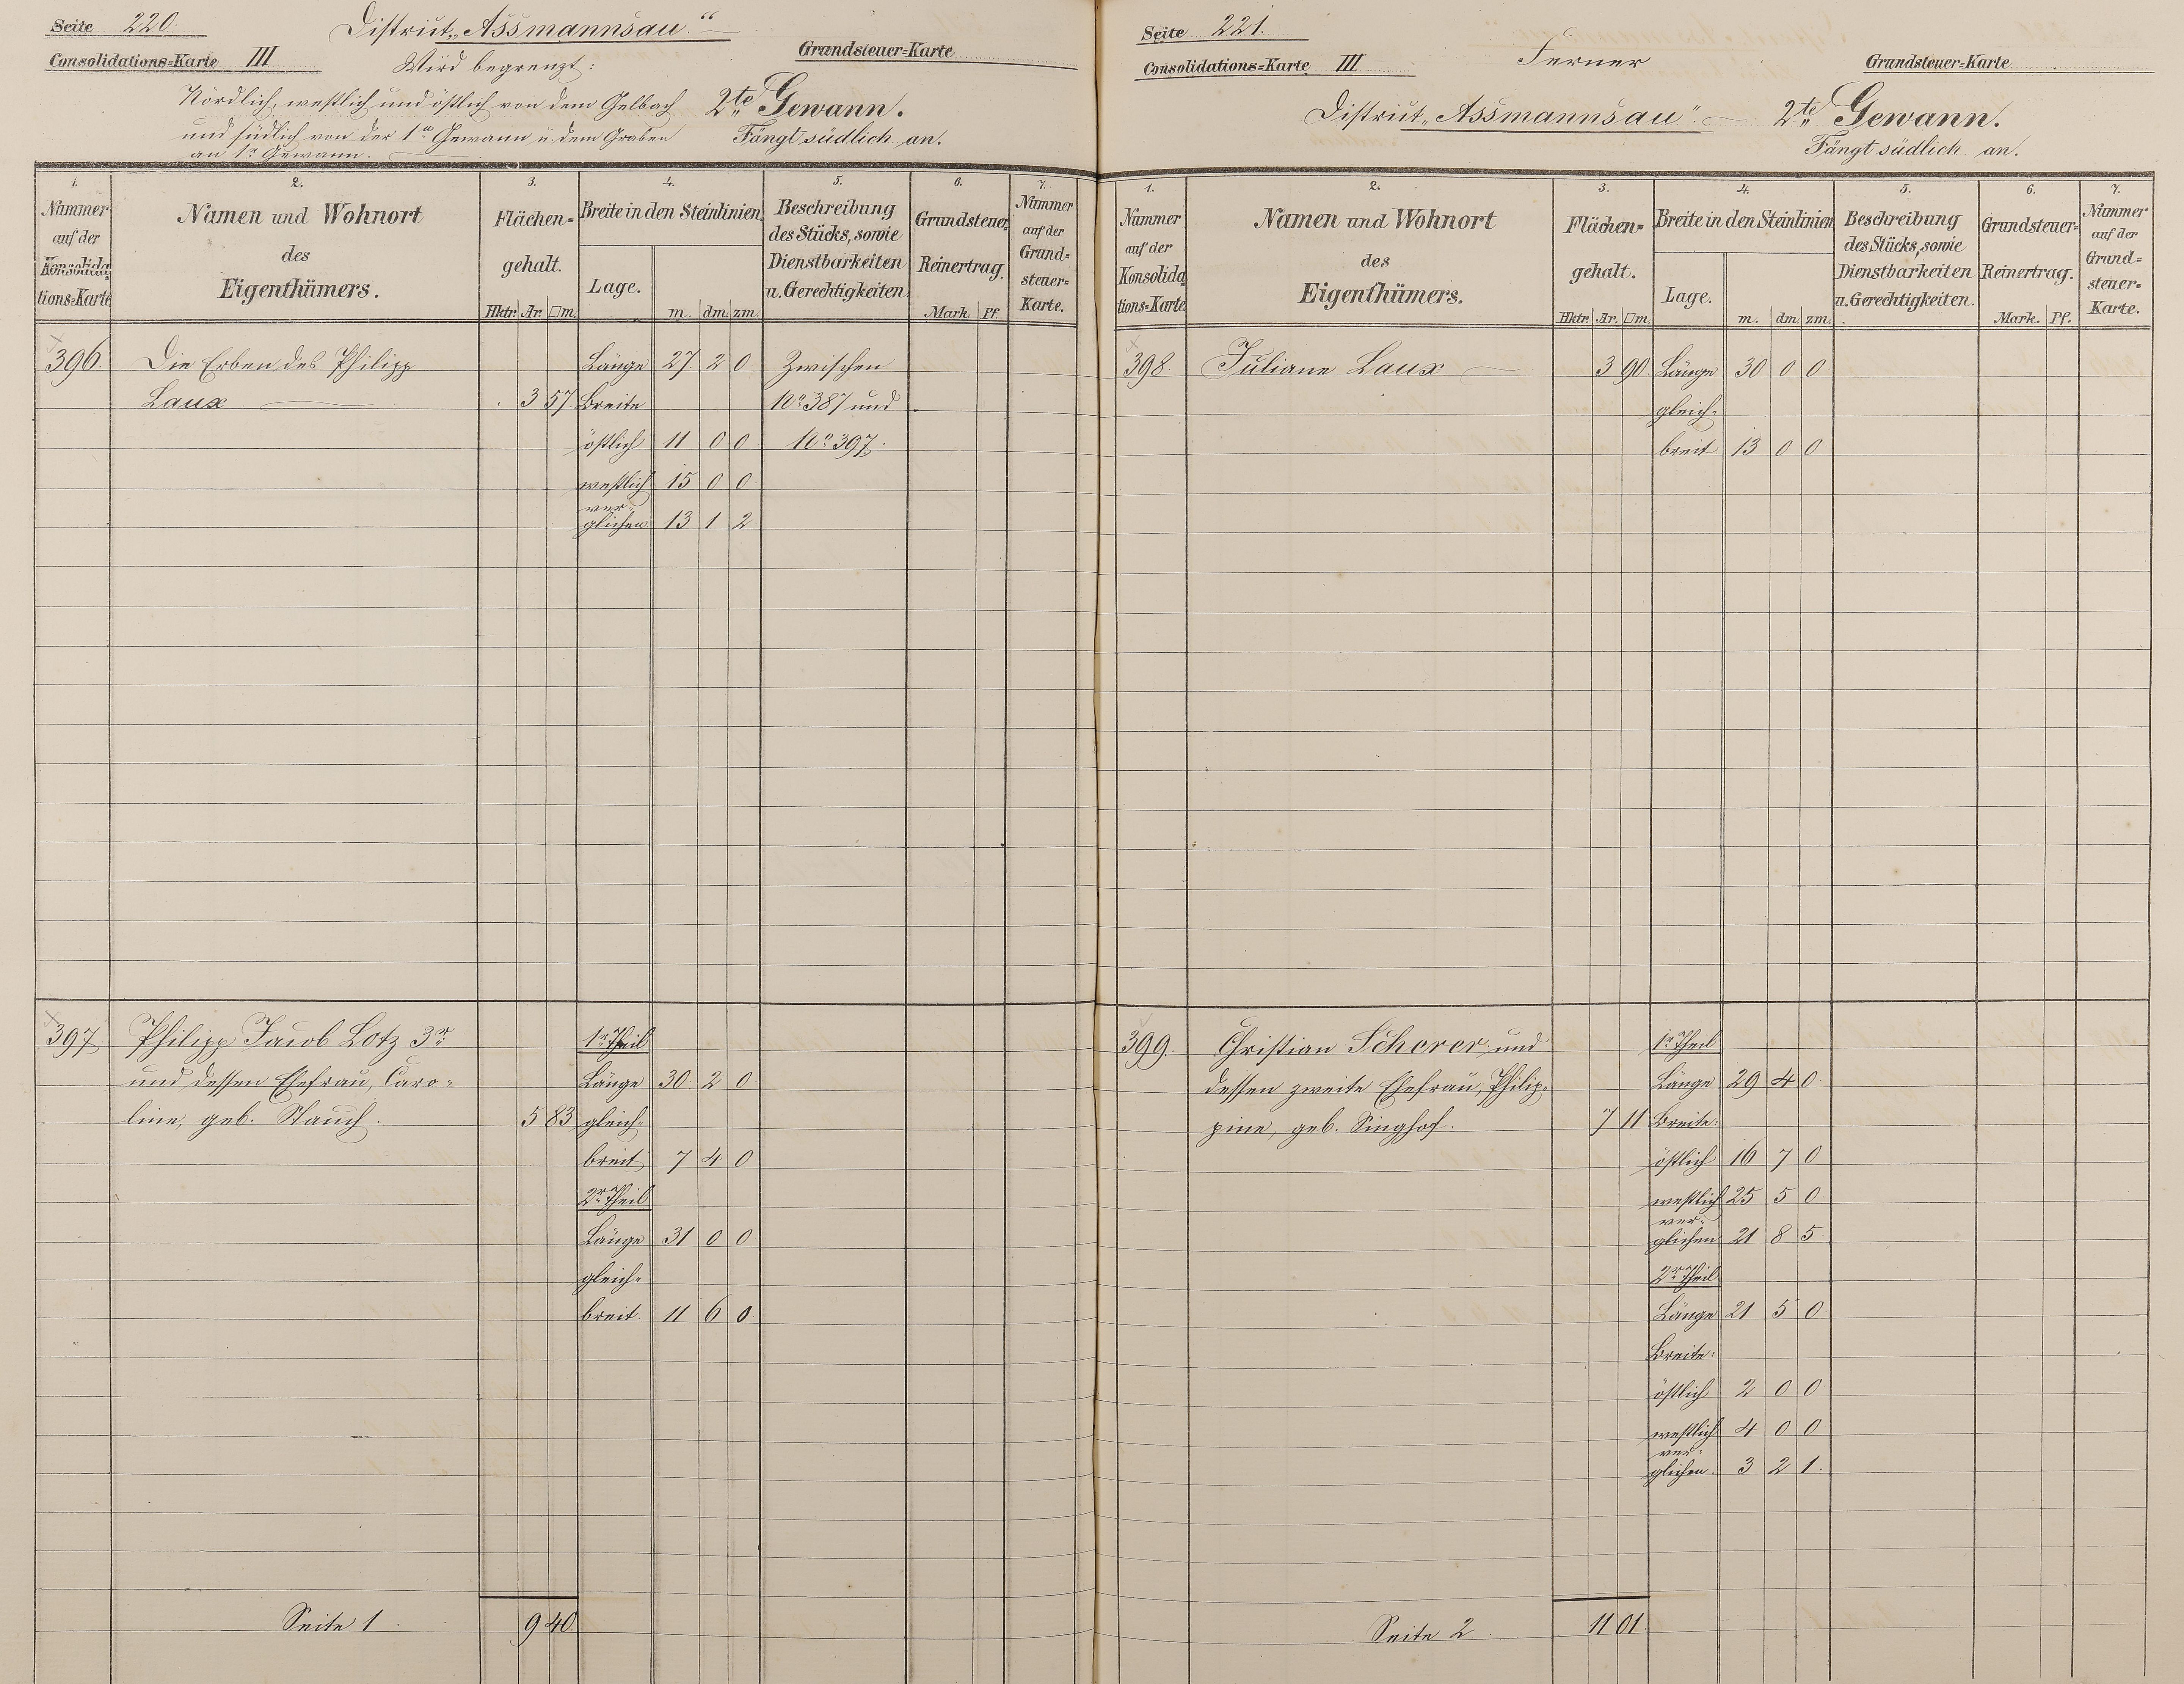 Seite 220.
District „Assmannsau.“
Grundsteuer=Karte
Consolidations=Karte III
Wird begrenzt:
Nördlich, westlich und östlich von dem Gelbach
und südlich von der 1n Gewann u. dem Graben
an 1r Gewann.
2te Gewann.
Fängt südlich an.
1. 2. 3. 4. 5. 6. 7.
Nummer auf der Konsolidations=Karte
Namen und Wohnort des Eigenthümers.
Flächen=gehalt.
Hktr. Ar. □m.
Breite in den Steinlinien
Lage. m. dm. zm.
Beschreibung des Stücks, sowie Dienstbarkeiten u. Gerechtigkeiten.
Grundsteuer=Reinertrag.
Mark. Pf.
Nummer auf der Grund=steuer=Karte.
396. Die Erben des Philipp Länge 27. 2 0 Zwischen
Laux 3 57. Breite No 387 und
östlich 11 0 0 No 397.
westlich 15 0 0
ver=
glichen 13 1 2
397. Philipp Jacob Lotz 3r 1r Theil
und dessen Ehefrau, Caro= Länge 30 2 0
line, geb. Stauch. 5 83 gleich=
breit 7 4 0
2r Theil
Länge 31 0 0
gleich=
breit 11 6 0
Seite 1 9 40
Seite 221.
Ferner
Grundsteuer=Karte
Consolidations=Karte III
District „Assmannsau“.
2te Gewann.
Fängt südlich an.
1. 2. 3. 4. 5. 6. 7.
Nummer auf der Konsolidations=Karte
Namen und Wohnort des Eigenthümers.
Flächen=gehalt.
Hktr. Ar. □m.
Breite in den Steinlinien
Lage. m. dm. zm.
Beschreibung des Stücks, sowie Dienstbarkeiten u. Gerechtigkeiten.
Grundsteuer=Reinertrag.
Mark. Pf.
Nummer auf der Grund=steuer=Karte.
398. Juliane Laux 3 90. Länge 30 0 0
gleich=
breit 13 0 0
399. Christian Scherer und 1r Theil
dessen zweite Ehefrau, Philip= Länge 29 4 0.
pine, geb. Singhof. 7 11 Breite:
östlich 16 7 0
westlich 25 5 0
ver=
glichen 21 8 5
2r Theil
Länge 21 5 0
Breite:
östlich 2 0 0
westlich 4 0 0
ver=
glichen. 3 2 1.
Seite 2 11 01